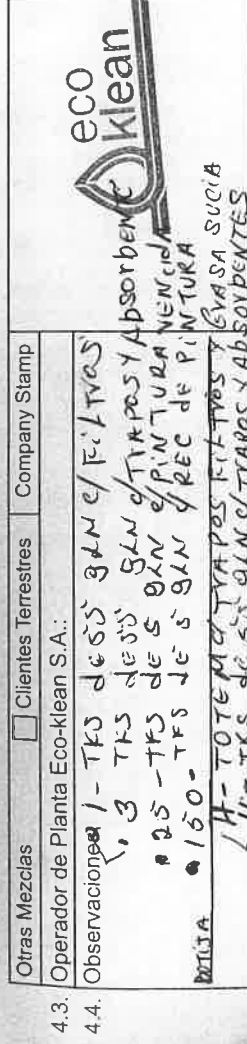 Otras Mezclas
Clientes Terrestres
Company Stamp
eco
klean
4.3. Operador de Planta Eco-klean S.A.:
4.4. Observaciones 1 - TKS de 55 gLN c/ FiLTROS
. 3 TKS de 55 gLN c/ TRAPOS Y Absorbente
25 - TKS de 5 gLN c/ PINTURA VENCIDA
150 - TKS de 5 gLN c/ REC de PINTURA
BOTIJA
4 - TOTEM c/ TRAPOS FILTROS Y GRASA SUCIA
TKS de 55 gLN c/ TRAPOS Y ABSORDENTES